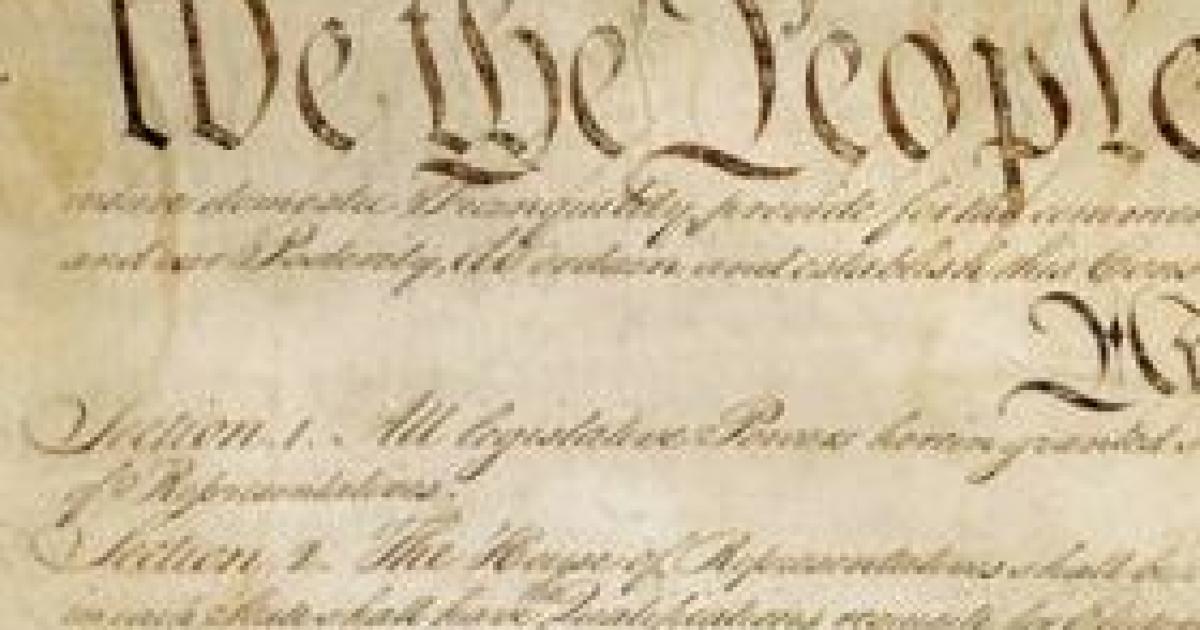 We the People
insure domestic Tranquility, provide for the common
and our Posterity, do ordain and establish this Cons
Section. 1. All legislative Powers herein granted
of Representatives.
Section. 2. The House of Representatives shall be
in each State shall have the Qualifications requisite for Elec